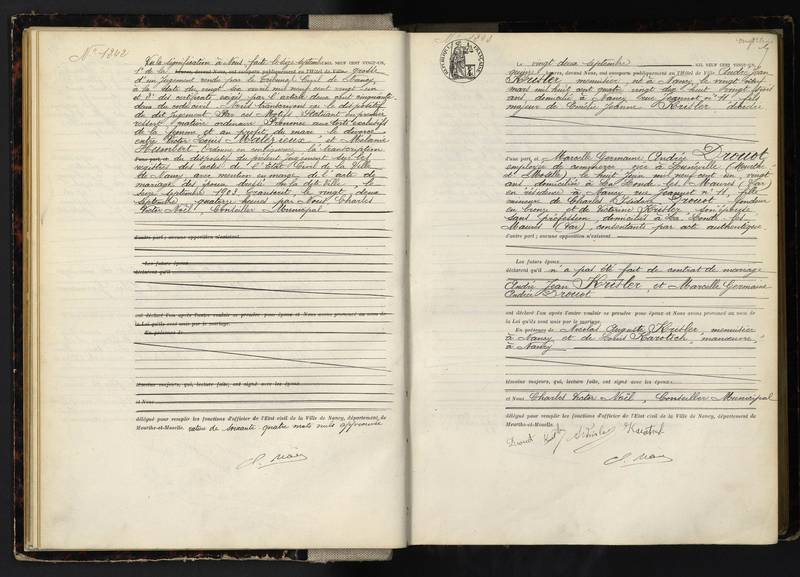 N° 1242
De la signification à Nous faite le seize septembre MIL NEUF CENT VINGT-UN,
1° de la heures, devant Nous, ont comparu publiquement en l'Hôtel de Ville grosse
d'un jugement rendu par le Tribunal Civil de Nancy
à la date du vingt six avril mil neuf cent vingt un
et 2° des certificats exigés par l'article deux cent cinquante
deux du code civil. Nous transcrivons ici le dispositif
du dit jugement. Par ces Motifs. Statuant en premier
ressort, matière ordinaire. Prononce aux torts exclusifs
de la femme et au profit du mari le divorce
entre Victor Louis Malezieux et Mélanie
Humbert. Ordonne en conséquence la transcription
du dispositif du présent jugement sur les
registres des actes de l'Etat Civil de la Ville
de Nancy avec mention en marge de l'acte de
mariage des époux dressé en la dite Ville le
seize septembre 1903. Transcrit le vingt deux
septembre quatorze heures par Nous Charles
Victor Noël, Conseiller Municipal
d'autre part ; aucune opposition n'existant
Les futurs époux
déclarent qu'il
ont déclaré l'un après l'autre vouloir se prendre pour époux et Nous avons prononcé au nom de
la Loi qu'ils sont unis par le mariage.
En présence de
témoins majeurs, qui, lecture faite, ont signé avec les époux
et Nous
délégué pour remplir les fonctions d'officier de l'Etat civil de la Ville de Nancy, département de
Meurthe-et-Moselle. rature de soixante quatre mots nuls approuvée
C. Noël
N° 1243
Le vingt deux septembre MIL NEUF CENT VINGT-UN,
quinze heures, devant Nous, ont comparu publiquement en l'Hôtel de Ville André Jean
Kribler, menuisier, né à Nancy, le vingt
mars mil huit cent quatre vingt dix huit, vingt trois
ans, domicilié à Nancy, rue Jeannot n° 11, fils
majeur de Emilie Jeanne Kribler, décédée
d'une part et Marcelle Germaine Andrée Drouot,
employée de commerce, née à Lunéville (Meurthe
et Moselle), le huit Juin mil neuf cent un, vingt
ans, domiciliée à La Londe les Maures (Var)
en résidence à Nancy rue Jeannot n° 11, fille
mineure de Charles Isidore Drouot, fondeur
en bronze et de Victorine Kribler, son épouse
sans profession, domiciliés à La Londe les
Maures (Var), consentants par acte authentique
d'autre part ; aucune opposition n'existant
Les futurs époux
déclarent qu'il n'a pas été fait de contrat de mariage
André Jean Kribler, et Marcelle Germaine
Andrée Drouot
ont déclaré l'un après l'autre vouloir se prendre pour époux et Nous avons prononcé au nom de
la Loi qu'ils sont unis par le mariage.
En présence de Nicolas Auguste Kribler, menuisier
à Nancy, et de Louis Karotsch, manœuvre,
à Nancy
témoins majeurs, qui, lecture faite, ont signé avec les époux
et Nous Charles Victor Noël, Conseiller Municipal
délégué pour remplir les fonctions d'officier de l'Etat civil de la Ville de Nancy, département de
Meurthe-et-Moselle.
Drouot
C. Noël